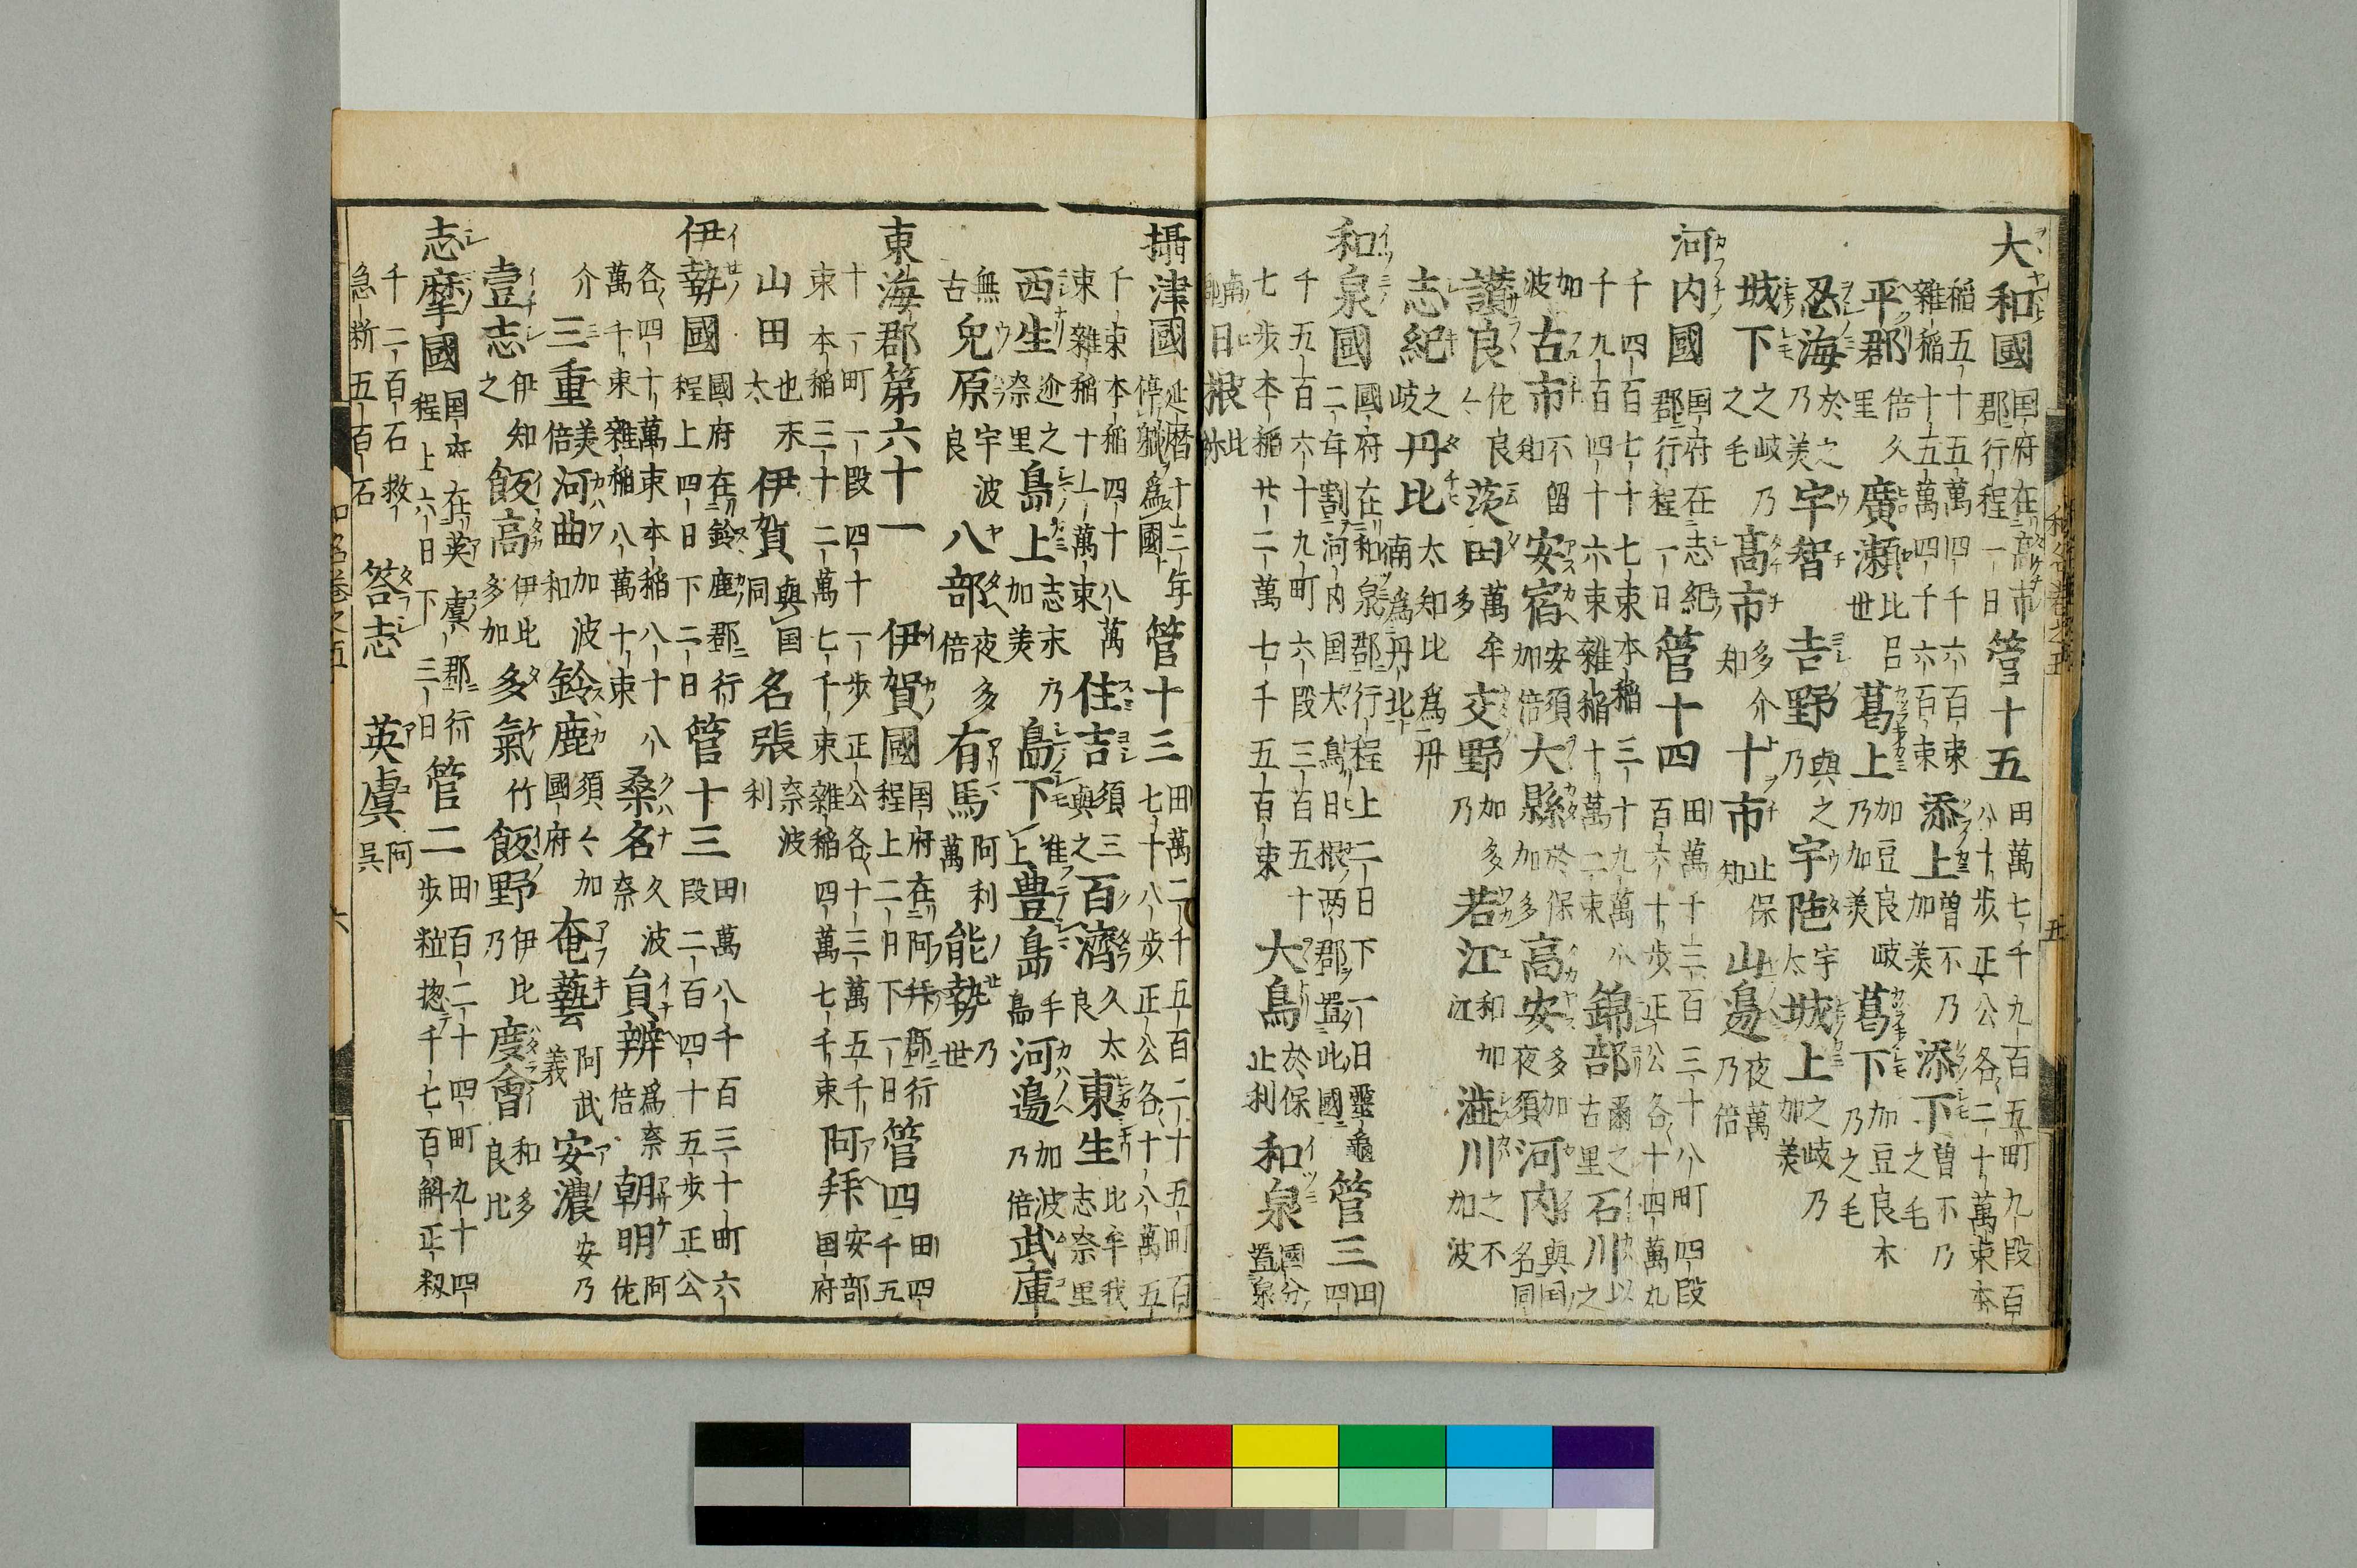 大和國 国府在高市郡行程一日 管十五 田萬七千九百五町九段百八十歩正公各二十萬束本
稲五十五萬四千六百束雜稲十五萬四千六百束 添上 曽不乃加美 添下 曽不乃之毛
平郡 倍久里 廣瀬 比呂世 葛上 加豆良岐乃加美 葛下 加豆良木乃之毛
忍海 於之乃美 宇智 吉野 與之乃 宇陁 宇太 城上 之岐乃加美
城下 之岐乃之毛 髙市 多介知 十市 止保知 山邉 夜萬乃倍
河内國 国府在志紀郡行程一日 管十四 田萬千三百三十八町四段百六十歩正公各十四萬九
千四百七十七束本稲三十九萬八千九百四十六束雜稲十萬二束 錦部 爾之古里 石川 以之加
波 古市 不留知 安宿 安須加倍 大縣 於保加多 高安 多加夜須 河内 與国名同
讃良 佐良良 茨田 萬牟多 交野 加多乃 若江 和加江 澁川 之不加波
志紀 之岐 丹比 太知比為丹南為丹北
和泉國 國府在和泉郡行程上二日下一日靈龜二年割河内国大鳥日根两郡置此國 管三 田四
千五百六十九町六段三百五十七歩本稲廿二萬七千五百束 大鳥 於保止利 和泉 國分置泉
南郡 日根 比祢
攝津國 延暦十二年停職為國 管十三 田萬二千五百二十五町百七十八歩正公各十八萬五
千束本稲四十八萬束雜稲十一萬束 住吉 須三與之 百濟 久太良 東生 比牟我志奈里
西生 逾之奈里 島上 志末乃加美 島下 准上 豊島 手島 河邉 加波乃倍 武庫
無古 兒原 宇波良 八部 夜多倍 有馬 阿利萬 能勢 乃世
東海郡第六十一 伊賀國 国府在阿拝郡行程上二日下一日 管四 田四千五
十一町一段四十一歩正公各十三萬五千束本稲三十二萬七千束雜稲四萬七千束 阿拝 安部国府
山田 也末太 伊賀 與国同 名張 奈波利
伊勢國 國府在鈴鹿郡行程上四日下二日 管十三 田萬八千百三十町六段二百四十五歩正公
各四十萬束本稲八十八萬千束雜稲八萬十束 桑名 久波奈 員辨 為奈倍 朝明 阿佐
介 三重 美倍 河曲 加波和 鈴鹿 須々加國府 奄藝 阿武義 安濃 安乃
壹志 伊知之 飯高 伊比多加 多氣 竹 飯野 伊比乃 度會 和多良比
志摩國 国府在英虞郡行程上六日下三日 管二 田百二十四町九十四歩粒惣千七百斛正税
千二百石救急新五百石 答志 英虞 阿呉
和名巻之五 五
和名巻之五 六